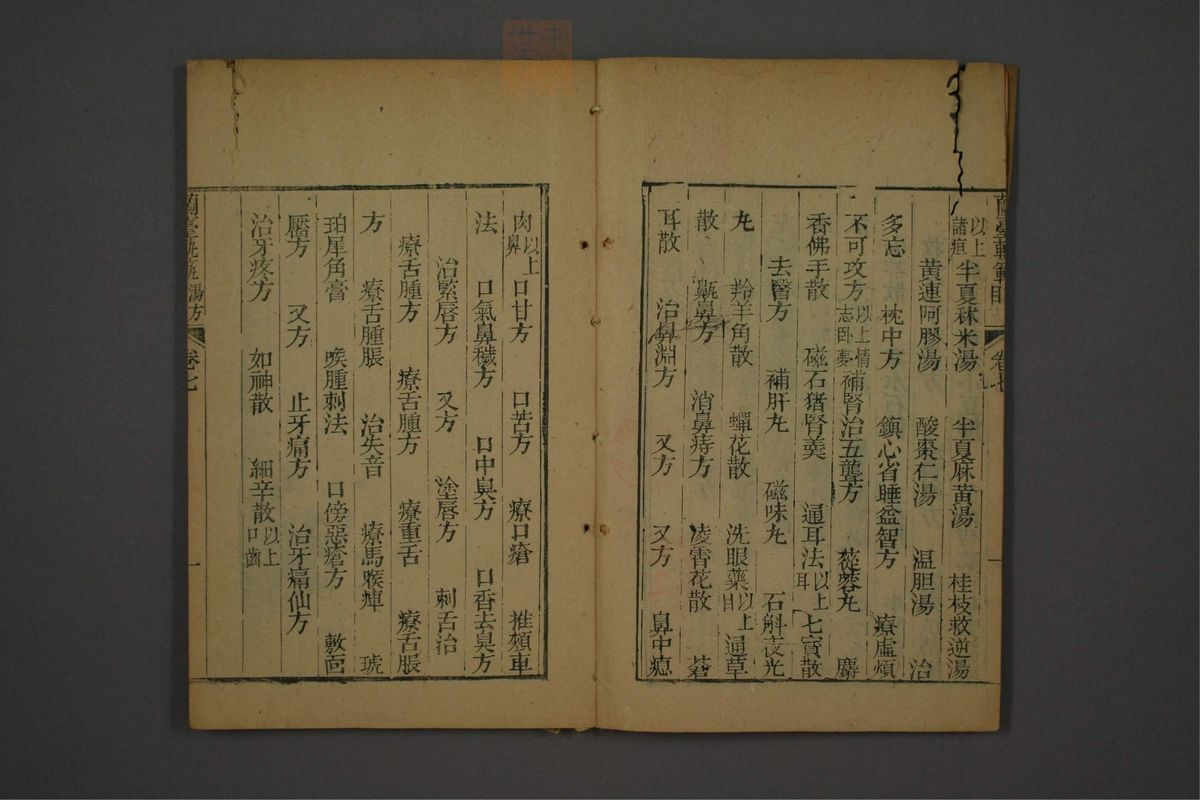 以上諸疸 半夏秫米湯 半夏麻黃湯 桂枝救逆湯
黃連阿膠湯 酸棗仁湯 温胆湯 治
多忘 枕中方 鎮心省睡益智方 療虛煩
不可攻方 以上情志卧夢 補腎治五聾方 蓯蓉丸 麝
香佛手散 磁石猪腎羹 通耳法 以上耳 七寳散
去瞖方 補肝丸 磁味丸 石斛夜光
丸 羚羊角散 蟬花散 洗眼藥 以上目 通草
散 齆鼻方 消鼻痔方 凌霄花散 蒼
耳散 治鼻淵方 又方 又方 鼻中瘜
肉 以上鼻 口甘方 口苦方 療口瘡 推頰車
法 口氣鼻穢方 口中臭方 口香去臭方
治緊唇方 又方 塗唇方 刺舌治
療舌腫方 療舌腫方 療重舌 療舌脹
方 療舌腫脹 治失音 療馬喉痺 琥
珀犀角膏 喉腫刺法 口傍惡瘡方 敷面
靨方 又方 止牙痛方 治牙痛仙方
治牙疼方 如神散 細辛散 以上口齒
蘭臺軌範 湯方 卷七 一